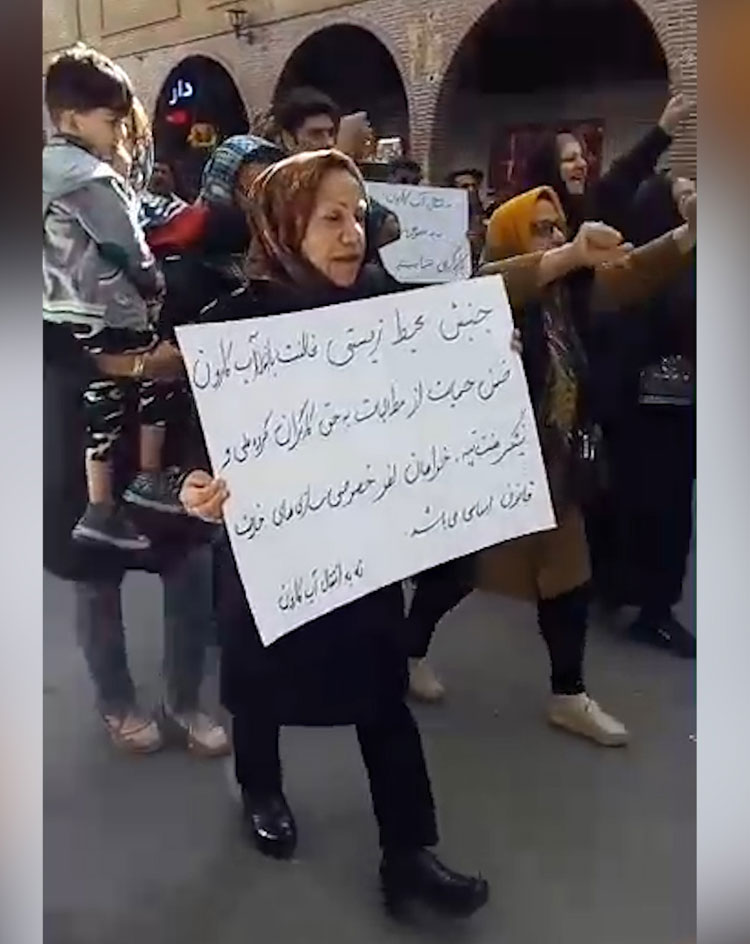 دار
به انتقال آب کارون
کارگری
جنبش محیط زیستی مخالفت با انتقال آب کارون
ضمن حمایت از مطالبات به حق کارگران گروه ملی و
نیشکر هفت تپه، خواهان لغو خصوصی سازی های خلاف
قانون اساسی می باشد.
نه به انتقال آب کارون